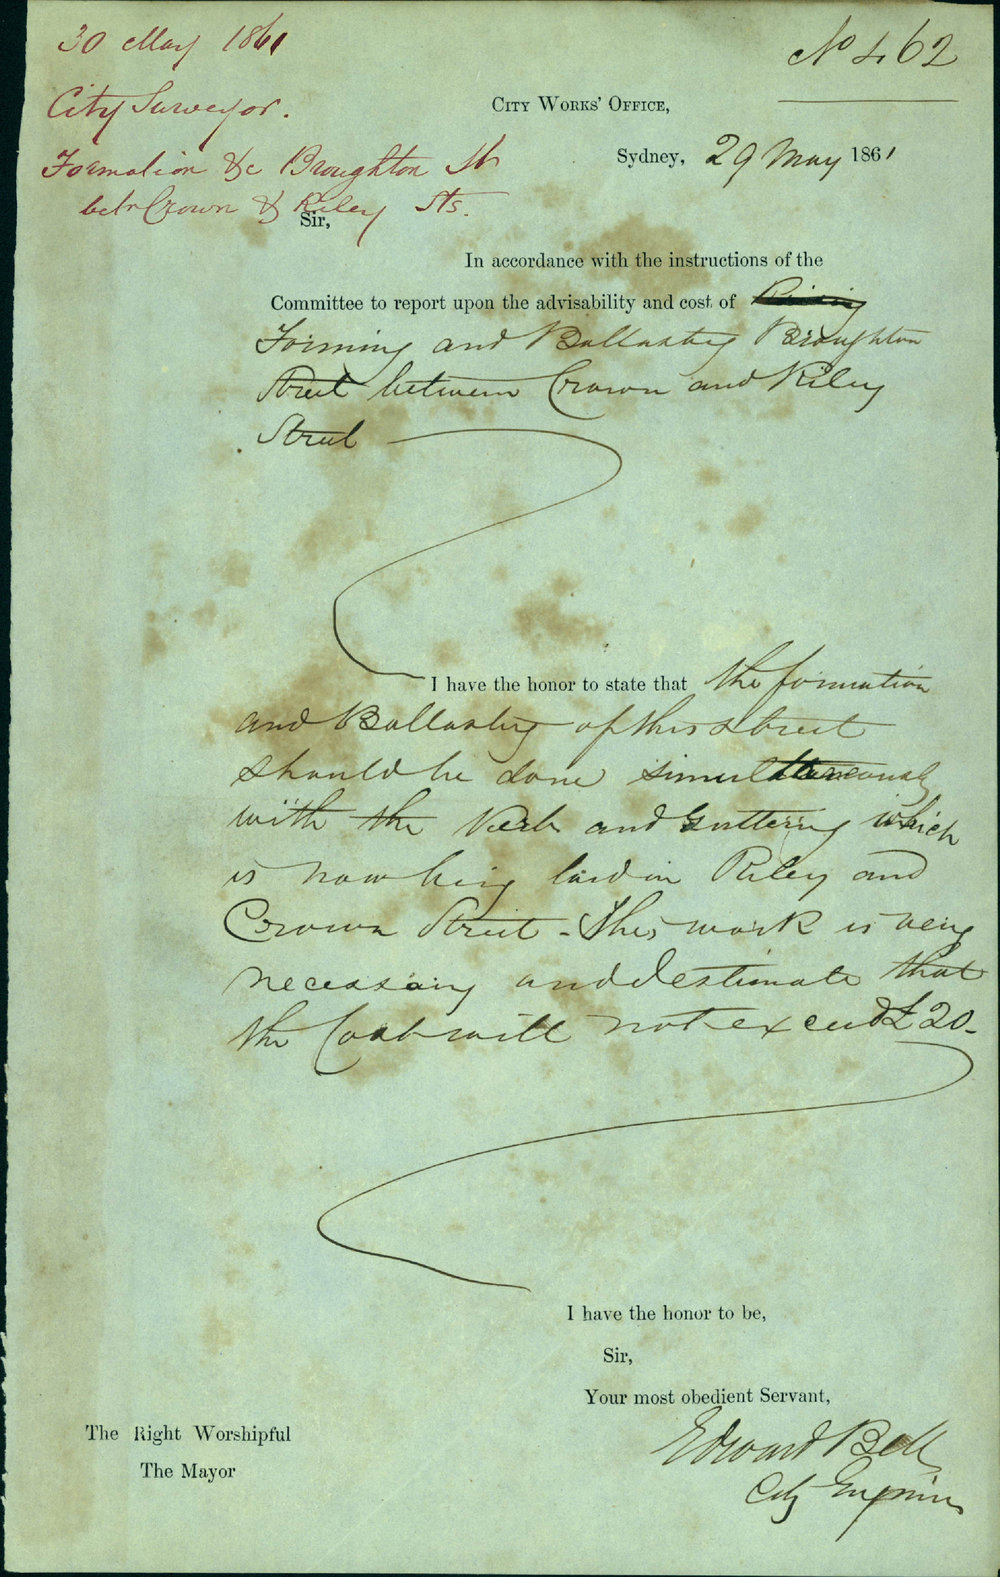 30 May 1861
No 462
City Surveyor.
CITY WORKS' OFFICE,
Formation &c Broughton St
Sydney, 29 May 1861
betn Crown & Riley Sts.
Sir,
In accordance with the instructions of the
Committee to report upon the advisability and cost of
Forming and Ballasting Broughton
Street between Crown and Riley
Street
I have the honor to state that the formation
and Ballasting of this street
should be done simultaneously
with the Kerb and Guttering which
is now being laid in Riley and
Crown Street - This work is very
necessary and I estimate that
the Cost will not exceed £20-
I have the honor to be,
Sir,
Your most obedient Servant,
Edward Bell
City Engineer
The Right Worshipful
The Mayor